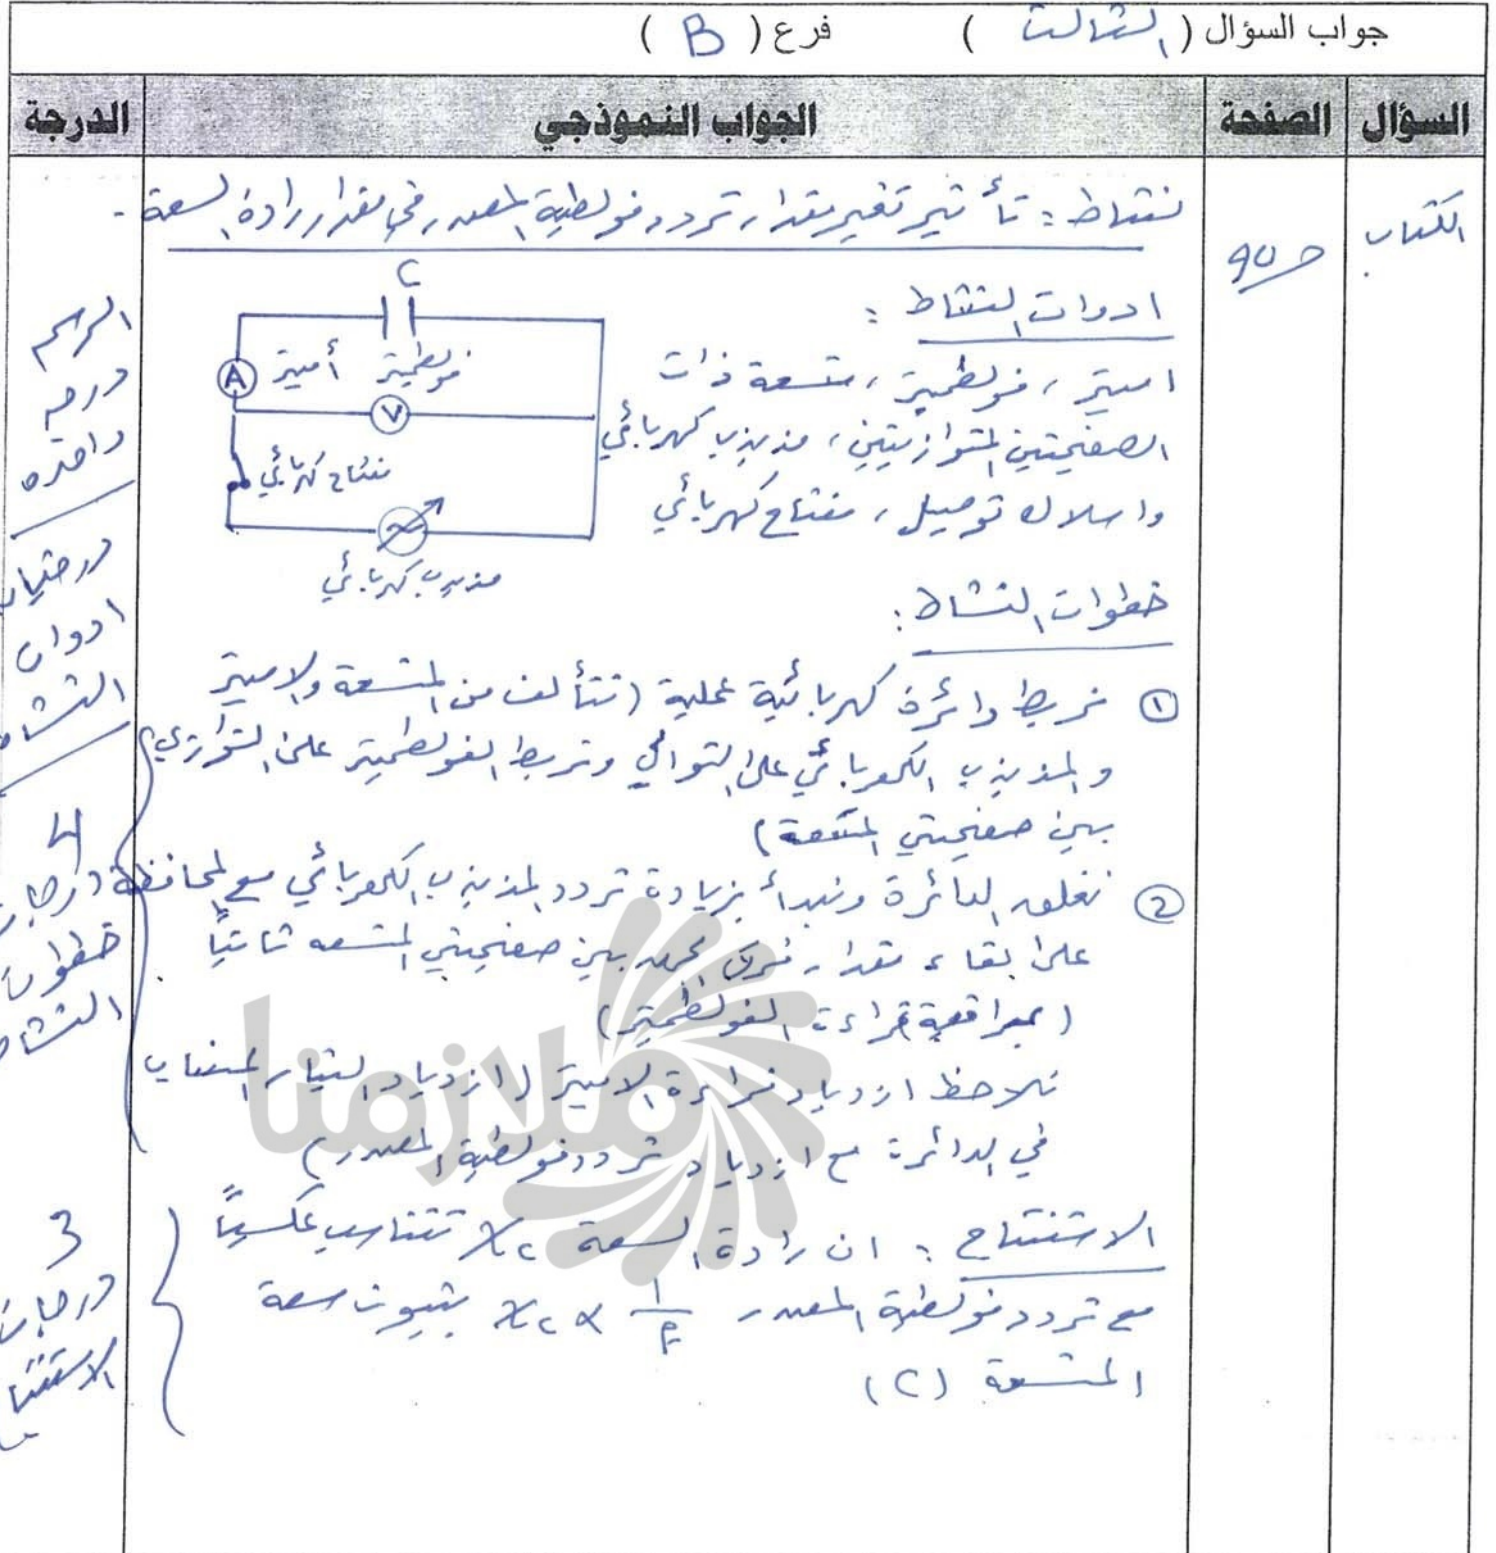 جواب السؤال ( الثالث ) فرع ( B )
السؤال الصفحة الجواب النموذجي الدرجة
الكتاب
ص90
نشاط : تأثير تغير مقدار تردد فولطية المصدر في مقدار رادة السعة .
ادوات النشاط :
اميتر ، فولطميتر ، متسعة ذات
الصفيحتين المتوازيتين ، مذبذب كهربائي
واسلاك توصيل ، مفتاح كهربائي
C
A أميتر فولطميتر
V
مفتاح كهربائي
مذبذب كهربائي
خطوات النشاط :
① نربط دائرة كهربائية عملية ( تتألف من المتسعة والاميتر
والمذبذب الكهربائي على التوالي ونربط الفولطميتر على التوازي
بين صفيحتي المتسعة )
② نغلق الدائرة ونبدأ بزيادة تردد المذبذب الكهربائي مع المحافظة
على بقاء مقدار فرق الجهد بين صفيحتي المتسعه ثابتاً
( بمراقبة قراءة الفولطميتر )
نلاحظ ازدياد قراءة الاميتر ( ازدياد التيار المنساب
في الدائرة مع ازدياد تردد فولطية المصدر )
الاستنتاج : ان رادة السعة Xc تتناسب عكسياً
مع تردد فولطية المصدر Xc ∝ 1/f بثبوت سعة
المتسعة (C)
الرسم
درجه
واحده
درجتان
ادوات
النشاط
4
درجات
خطوات
النشاط
3
درجات
ملازمنا